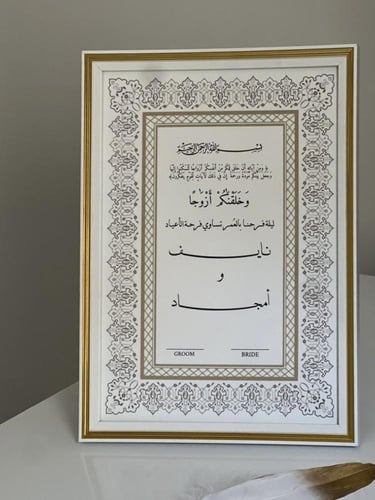 بسم الله الرحمن الرحيم
﴿ ومن آياته أن خلق لكم من أنفسكم أزواجا لتسكنوا إليها
وجعل بينكم مودة ورحمة إن في ذلك لآيات لقوم يتفكرون ﴾
وَخَلَقْنَٰكُمْ أَزْوَٰجًا
ليلة فرحنا بالعمر تساوي فرحة الأعياد
نايف
و
أمجاد
GROOM BRIDE